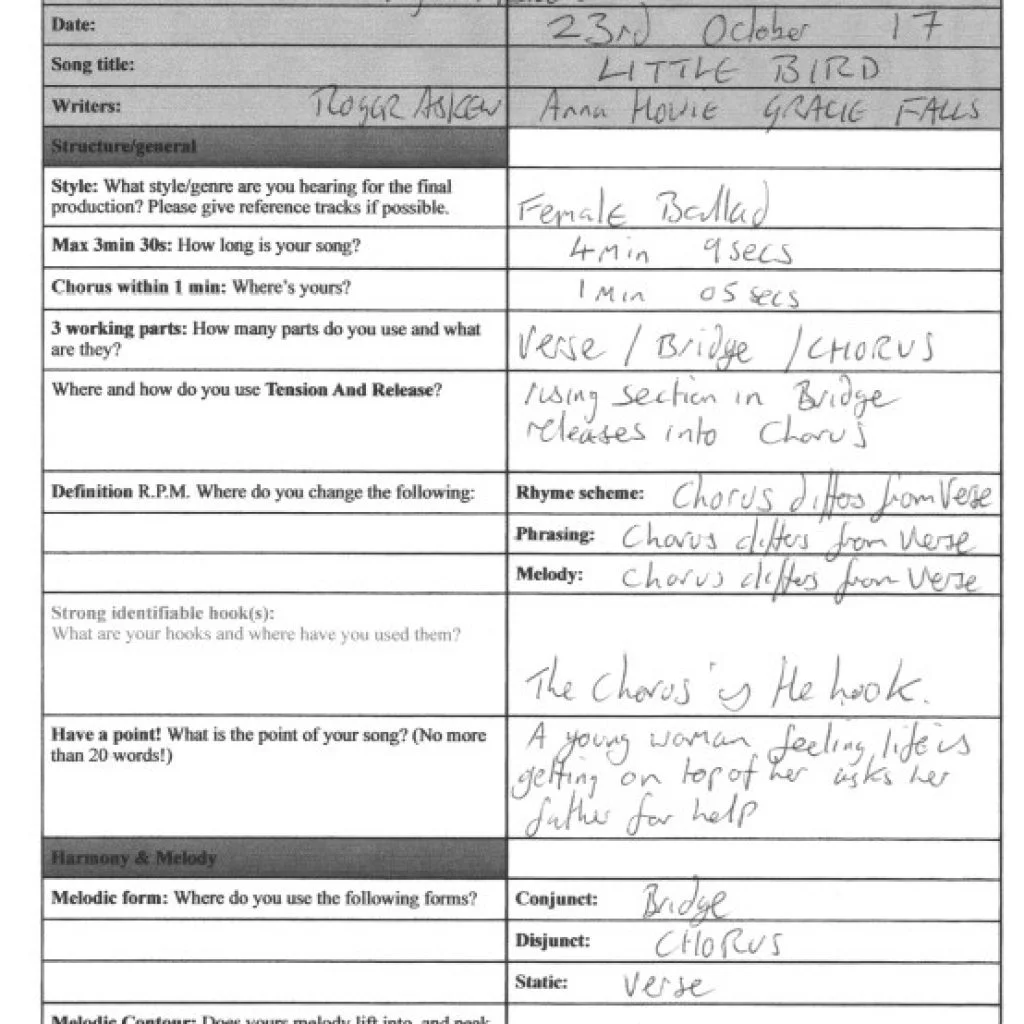 Date: 23rd October 17
Song title: LITTLE BIRD
Writers: ROGER ASKEW Anna HOWIE GRACIE FALLS
Structure/general
Style: What style/genre are you hearing for the final
production? Please give reference tracks if possible.
Female Ballad
Max 3min 30s: How long is your song? 4 Min 9 secs
Chorus within 1 min: Where's yours? 1 Min 05 secs
3 working parts: How many parts do you use and what
are they?
Verse / Bridge / CHORUS
Where and how do you use Tension And Release?
rising section in Bridge
releases into Chorus
Definition R.P.M. Where do you change the following:
Rhyme scheme: Chorus differs from Verse
Phrasing: Chorus differs from Verse
Melody: Chorus differs from Verse
Strong identifiable hook(s):
What are your hooks and where have you used them?
The Chorus is the hook.
Have a point! What is the point of your song? (No more
than 20 words!)
A young woman feeling life is
getting on top of her asks her
father for help
Harmony & Melody
Melodic form: Where do you use the following forms?
Conjunct: Bridge
Disjunct: CHORUS
Static: Verse
Melodic Contour: Does yours melody lift into, and peak